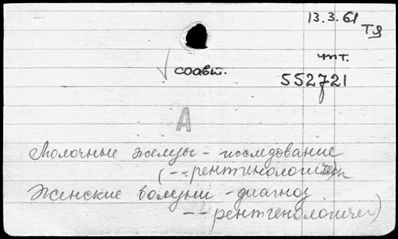 13.3.61
ТЯ
чит.
соавт.
552721
А
Молочные железы - исследование
(-- рентгенологич.
Женские болезни - диагноз
-- рентгенологич.)